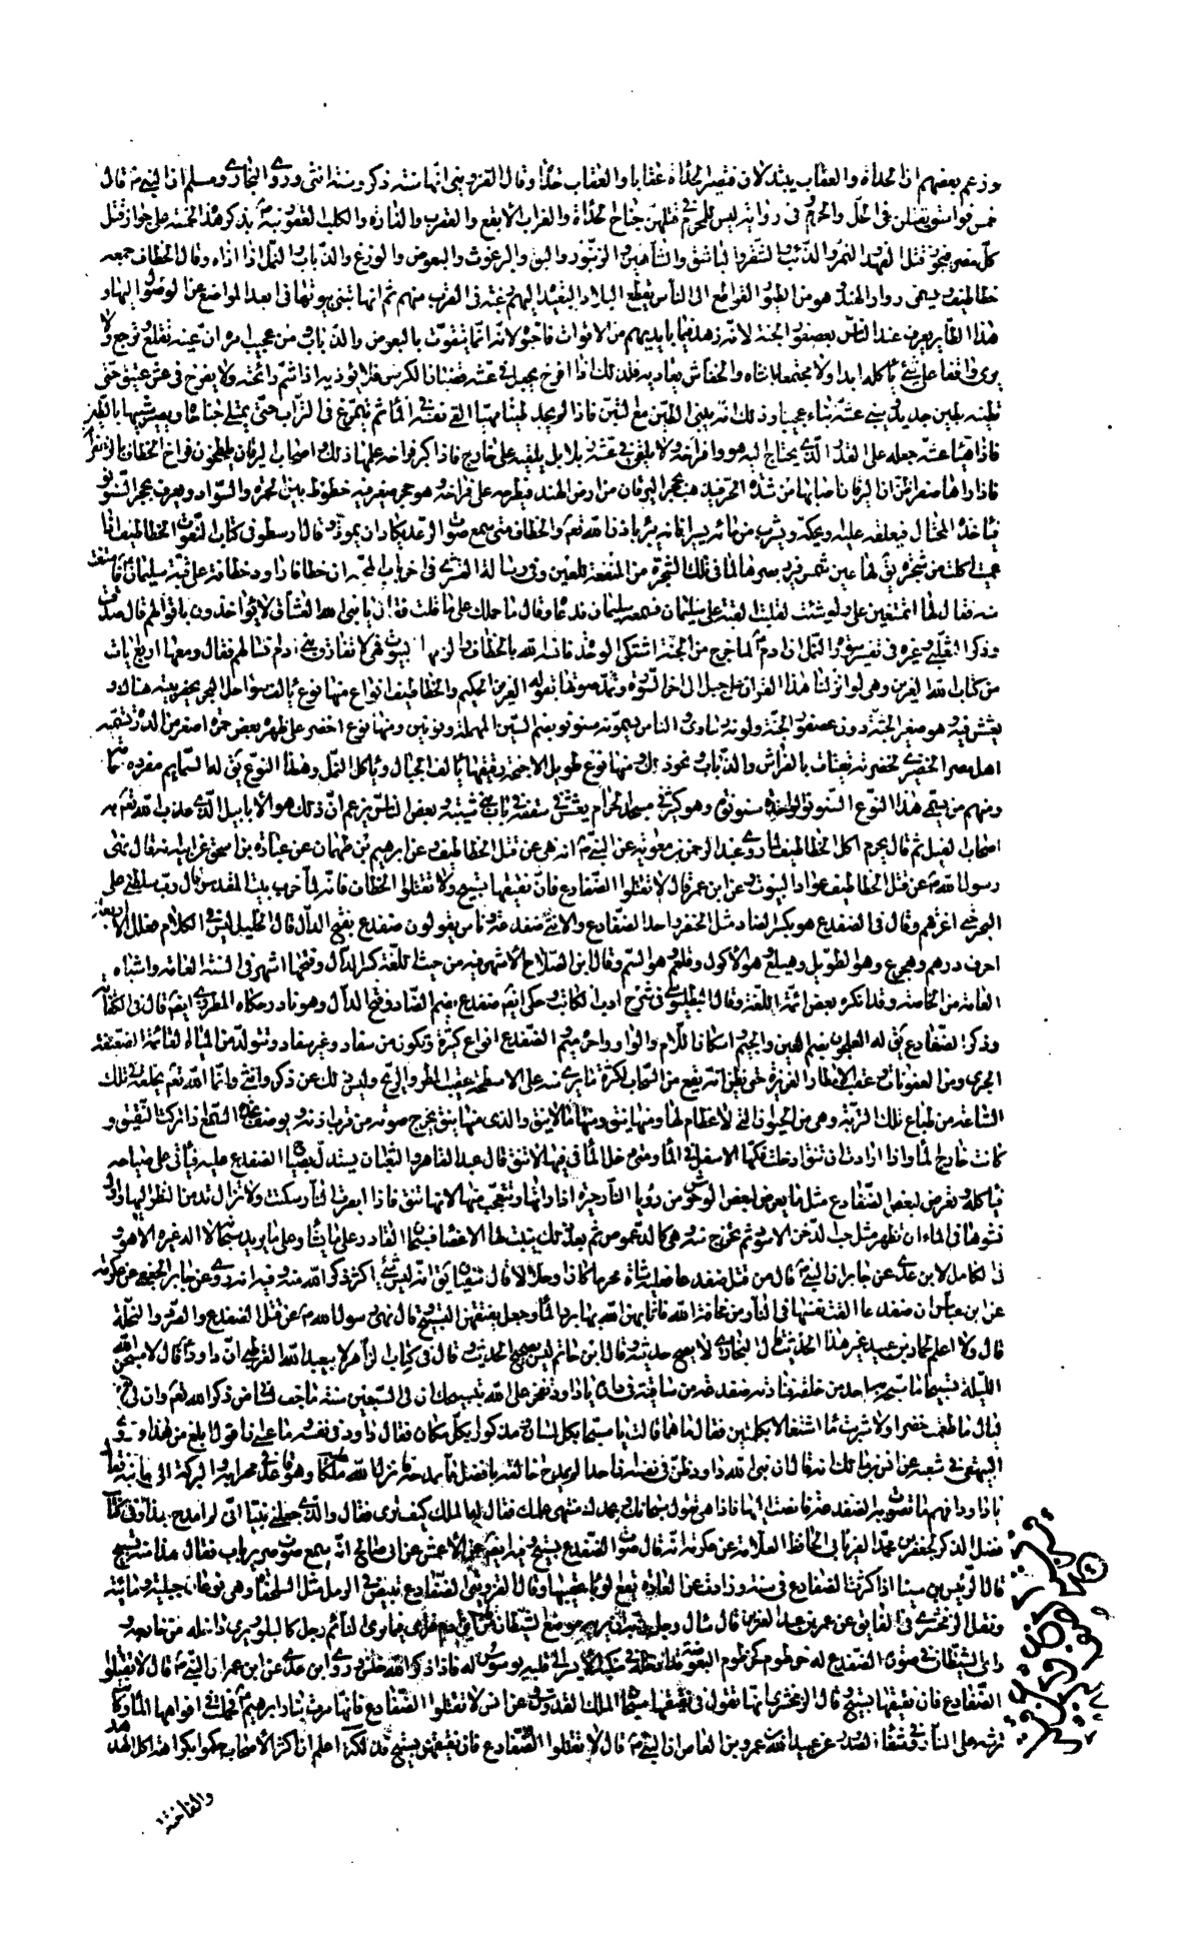 وزعم بعضهم ان الحداة والعقاب يتبدلان فتصير الحداة عقابا والعقاب حداة وقال القزويني انها سنة ذكر وسنة انثى وروى البخاري ومسلم ان النبي ص قال
خمس فواسق يقتلن في الحل والحرم وفي رواية ليس للمحرم في قتلهن جناح الحداة والغراب الابقع والعقرب والفارة والكلب العقور نبه بذكر هذه الخمسة على جواز قتل
كل مضر فيجوز قتل الفهد والنمر والذئب والصقر والباشق والشاهين والزنبور والبق والبرغوث والبعوض والوزغ والذباب والنمل اذا اذاه وقال الخطاف جمعه
خطاطيف ويسمى زوار الهند وهو من الطيور القواطع الى الناس يقطع البلاد البعيدة اليهم رغبة في القرب منهم ثم انها تبنى بيوتها في ابعد المواضع عن الوصول اليها و
هذا الطاير يعرف عند الناس بعصفور الجنة لانه زهد فيما بايديهم من الاقوات فاحبوه لانه انما يتقوت بالبعوض والذباب ومن عجيب امره ان عينه تقلع فترجع ولا
يرى واقفا على شئ ياكله ابدا ولا مجتمعا بانثاه والخفاش يعاديه فلذلك اذا افرخ يجعل في عشه قضبان الكرفس فلا يؤذيه اذا شم رائحته ولا يفرخ في عش عتيق حتى
يطينه بطين جديد ويبنى عشه بناء عجيبا وذلك انه يهيئ الطين مع التبن فاذا لم يجد طينا مهيئا القى نفسه في الماء ثم يتمرغ في التراب حتى يمتلى جناحاه ويصير شبيها بالطين
فاذا هيئا عشه جعله على القدر الذي يحتاج اليه هو وافراخه ولا يلقى في عشه زبلا بل يلقيه على خارج فاذا كبر فراخه علمها ذلك واصحاب اليرقان يلطخون فراخ الخطاف بالزعفران
فاذا راها صفرا ظن ان اليرقان اصابها من شدة الحر فيذهب فيجئ بحجر اليرقان من ارض الهند فيطرحه على فراخه وهو حجر صغير فيه خطوط بين الحمرة والسواد ويعرف بحجر السنونو
فياخذه المحتال فيعلقه عليه او يحكه ويشرب من مائه يسيرا فانه يبرأ باذن الله تعالى والخطاف متى سمع صوت الرعد يكاد ان يموت وقال ارسطو في كتاب النعوت الخطاطيف اذا
عميت اكلت من شجرة يقال لها عين شمس فيرد بصرها لما في تلك الشجرة من المنفعة للعين وفي رسالة القشيري في اخر باب المحبة ان خطافا راود خطافة على قبة سليمان ع فامتنعت
منه فقال لها اتمتنعين على ولو شئت لقلبت القبة على سليمان فسمعه سليمان فدعاه وقال ما حملك على ما قلت فقال يا نبي الله العشاق لا يؤاخذون باقوالهم قال صدقت
وذكر الثعلبي وغيره في تفسير سورة النمل ان ادم ع لما خرج من الجنة اشتكى الوحشة فانسه الله بالخطاف والزمها البيوت فهي لا تفارق بني ادم انسا لهم قال ومعها اربع ايات
من كتاب الله العزيز وهي لو انزلنا هذا القرآن على جبل الى اخر السورة وتمد صوتها بقوله العزيز الحكيم والخطاطيف انواع منها نوع يالف سواحل البحر يحفر بيته هناك و
يعشش فيه وهو صغير الجثة دون عصفور الجنة ولونه رمادى والناس يسمونه سنونو بضم السين المهملة ونونين ومنها نوع اخضر على ظهره بعض حمرة اصغر من الدرة تسميه
اهل مصر الخضيرى لخضرته يقتات بالفراش والذباب ونحو ذلك ومنها نوع طويل الاجنحة رقيقها يالف الجبال وياكل النمل وهذا النوع يقال له السمايم مفرده سمامة
ومنهم من يسمى هذا النوع السنونو الواحدة سنونوة وهو كثير في المسجد الحرام يعشش في سقفه في باب بني شيبة وبعض الناس يزعم ان ذلك هو الابابيل الذي عذب الله تعالى به
اصحاب الفيل ثم قال يحرم اكل الخطاطيف لما روى عبد الرحمن بن معوية عن النبي ص انه نهى عن قتل الخطاطيف وعن ابرهيم بن طهمان عن عباد بن اسحق عن ابيه انه قال نهى
رسول الله ص عن قتل الخطاطيف عواذ البيوت وعن ابن عمر قال لا تقتلوا الضفادع فان نقيقها تسبيح ولا تقتلوا الخطاف فانه لما خرب بيت المقدس قال رب سلطني على
البحر حتى اغرقهم وقال في الضفدع هو بكسر الضاد مثل الخنصر واحد الضفادع والانثى ضفدعة وناس يقولون ضفدع بفتح الدال قال الخليل ليس في الكلام فعلل الا اربعة
احرف درهم وهجرع وهو الطويل وهبلع وهو الاكول وقلعم وهو اسم وقال ابن الصلاح الاشهر فيه من حيث اللغة كسر الدال وفتحها اشهر في السنة العامة واشباه
العامة من الخاصة وقد انكره بعض ائمة اللغة وقال البطليوسي في شرح ادب الكاتب وحكى ايضا ضفدع بضم الضاد وفتح الدال وهو نادر وحكاه المطرزي ايضا قال في الكفاية
وذكر الضفادع يقال له العلجوم بضم العين والجيم واسكان اللام والواو واخره ميم الضفدع انواع كثيرة وتكون من سفاد وغير سفاد وتتولد من المياه القائمة الضعيفة
الجرى ومن العفونات وعقب الامطار الغزيرة حتى يظن انه يقع من السحاب لكثرة ما يرى منه على الاسطحة عقيب المطر والريح وليس ذلك عن ذكر وانثى وانما الله تعالى يخلقه في تلك
الساعة من طباع تلك التربة وهي من الحيوان الذي لا عظام لها ومنها ما ينق ومنها ما لا ينق والذي ينق منها يخرج صوته من قرب اذنه ويوصف بحدة السمع اذا تركت النقيق و
كانت خارج الماء واذا ارادت ان تنق ادخلت فكها الاسفل في الماء ومتى دخل الماء في فيها لا تنق قال عبد القاهر والثعبان يستدل بصياح الضفدع عليه فياتى على صياحه
فياكله ويعرض لبعض الضفادع مثل ما يعرض لبعض الوحوش من رؤيا النار حيرة اذا راتها وتتعجب منها لانها تنق فاذا ابصرت النار سكتت ولا تزال تديم النظر اليها واول
نشوها في الماء ان تظهر مثل حب الدخن الاسود ثم تخرج منه وهي كالدعموص ثم بعد ذلك ينبت لها الاعضاء فسبحان القادر على ما يشاء وعلى ما يريد سبحانه لا اله غيره الا هو و
في الكامل لابن عدي عن جابر ان النبي ص قال من قتل ضفدعا فعليه شاة محرما كان او حلالا قال سفيان يقال انه ليس شئ اكثر ذكر الله منه وفيه انه روى عن جابر الجعفي عن عكرمة
عن ابن عباس ان ضفدعا القت نفسها في النار من مخافة الله فاثابهن الله بها برد الماء وجعل نقيقهن التسبيح قال نهى رسول الله ص عن قتل الضفدع والصرد والنحلة
قال ولا اعلم لحماد بن عبيد غير هذا الحديث قال البخاري لا يصح حديثه وقال ابن حاتم ليس بصحيح الحديث وقال في كتاب الزاهر لابي عبد الله القرطبي ان داود ع قال لاسبحن الله
الليلة تسبيحا ما سبحه به احد من خلقه فنادته ضفدعة من ساقية في داره يا داود تفخر على الله بتسبيحك ان لي لسبعين سنة ما جف لساني من ذكر الله تعالى وان لي عشر
ليال ما طعمت خضرا ولا شربت ماء اشتغالا بكلمتين فقال ما هما قالت يا مسبحا بكل لسان ومذكورا بكل مكان فقال داود في نفسه وما عسى ان اقول ابلغ من هذا وروى
البيهقي في شعبه عن انس بن مالك انه قال ان نبي الله داود ظن في نفسه ان احدا لم يمدح خالقه بافضل مما مدحه فانزل الله ملكا وهو قاعد في محرابه والبركة الى جانبه فقال
يا داود افهم ما تصوت به الضفدعة فانصت اليها فاذا هي تقول سبحانك وبحمدك منتهى علمك فقال له الملك كيف ترى فقال والذي جعلني نبيا اني لم امدحه بهذا وفي كتاب
فضل الذكر لجعفر بن محمد الفريابي الحافظ العلامة عن عكرمة انه قال صوت الضفدع تسبيح وفيه ايضا عن الاعمش عن ابي صالح انه سمع صوت صرير باب فقال هذا منه تسبيح
قال الرئيس ابن سينا اذا كثرت الضفادع في سنة وزادت عن العادة يقع الوباء عقيبها وقال القزويني الضفادع تبيض في الرمل مثل السلحفاة وهي نوعان جبلية ومائية
ونقل الزمخشري في الفايق عن عمر بن عبد العزيز قال سال رجل ربه ان يريه موضع الشيطان من قلب ابن ادم فراى فيما يرى النائم رجل كالبلور يرى داخله من خارجه و
راى الشيطان في صورة الضفدع له خرطوم كخرطوم البعوضة قد ادخله في منكبه الايسر الى قلبه يوسوس له فاذا ذكر الله خنس وروى ابن عدي عن ابن عمر ان النبي ص قال لا تقتلوا
الضفادع فان نقيقها تسبيح قال الزمخشري انها تقول في نقيقها سبحان الملك القدوس وعن انس لا تقتلوا الضفادع فانها مرت بنار ابرهيم ع فحملت في افواهها الماء وكانت
ترشه على النار وفي شفاء الصدور عن عبد الله بن عمرو بن العاص ان النبي ص قال لا تقتلوا الضفادع فان نقيقهن تسبيح قد لكن اعلم ان اكثر الاصحاب حكموا بكراهة اكل الهدهد
والفاختة